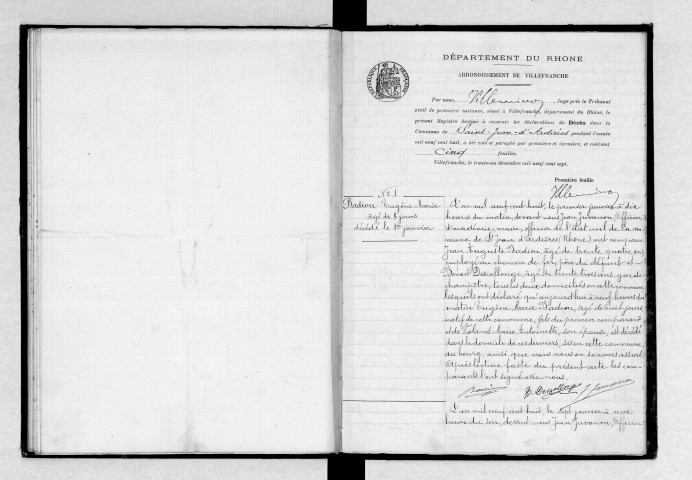 DÉPARTEMENT DU RHONE
ARRONDISSEMENT DE VILLEFRANCHE
RÉPUBLIQUE FRANÇAISE
Par nous, Juge près le Tribunal
civil de première instance, séant à Villefranche, département du Rhône, le
présent Registre destiné à recevoir les déclarations de Décès dans la
Commune de Saint-Jean-d'Ardières pendant l'année
mil neuf cent huit, a été coté et paraphé par première et dernière, et contient
Cinq feuilles.
Villefranche, le trente-un décembre mil neuf cent sept.
Première feuille
No 1
Badiou Eugène Marie
âgé de 8 jours
décédé le 1er janvier
L'an mil neuf cent huit, le premier janvier à dix
heures du matin, devant nous Jean Juvanon, Officier
d'académie, maire, officier de l'état civil de la com-
mune de St Jean d'Ardières (Rhône) ont comparu
Jean Auguste Badiou, âgé de trente quatre ans
employé au chemin de fer, père du défunt et
Benoit Descollonge, âgé de trente trois ans, garde
champêtre, tous les deux domiciliés en cette commune
lesquels ont déclaré qu'aujourd'hui à neuf heures du
matin Eugène Marie Badiou, âgé de huit jours
natif de cette commune, fils du premier comparant
et de Marie Antoinette, son épouse, est décédé
dans le domicile de ces derniers, sis en cette commune
au bourg, ainsi que nous nous en sommes assuré
Après lecture faite du présent acte les com-
parants l'ont signé avec nous.
Badiou B. Descollonge J. Juvanon
L'an mil neuf cent huit, le sept janvier à une
heure du soir, devant nous Jean Juvanon, Officier